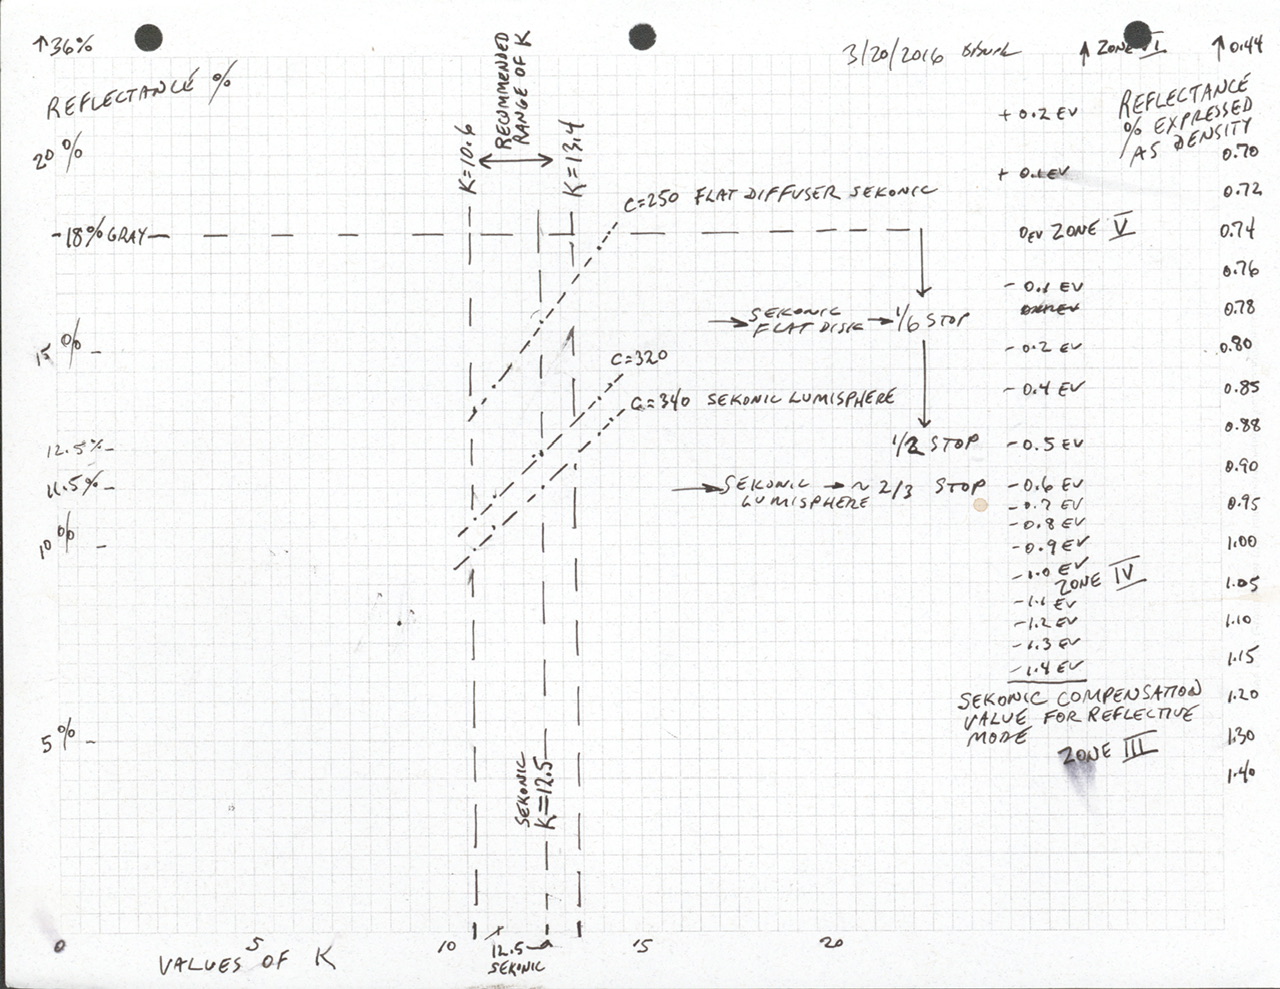 ↑36%
REFLECTANCE %
20%
-18% GRAY-
15% -
12.5% -
11.5% -
10% -
5% -
K=10.6
RECOMMENDED
RANGE OF K
K=13.4
C=250 FLAT DIFFUSER SEKONIC
SEKONIC
FLAT DISK → 1/6 STOP
C=320
C=340 SEKONIC LUMISPHERE
1/2 STOP
SEKONIC → ~ 2/3 STOP
LUMISPHERE
SEKONIC
K=12.5
0 5 10 15 20
12.5
SEKONIC
VALUES OF K
3/20/2016
↑ ZONE VI
+ 0.2 EV
+ 0.1 EV
0EV ZONE V
- 0.1 EV
- 0.2 EV
- 0.4 EV
- 0.5 EV
- 0.6 EV
- 0.7 EV
- 0.8 EV
- 0.9 EV
- 1.0 EV
ZONE IV
- 1.1 EV
- 1.2 EV
- 1.3 EV
- 1.4 EV
SEKONIC COMPENSATION
VALUE FOR REFLECTIVE
MODE
ZONE III
↑ 0.44
REFLECTANCE
% EXPRESSED
AS DENSITY
0.70
0.72
0.74
0.76
0.78
0.80
0.85
0.88
0.90
0.95
1.00
1.05
1.10
1.15
1.20
1.30
1.40